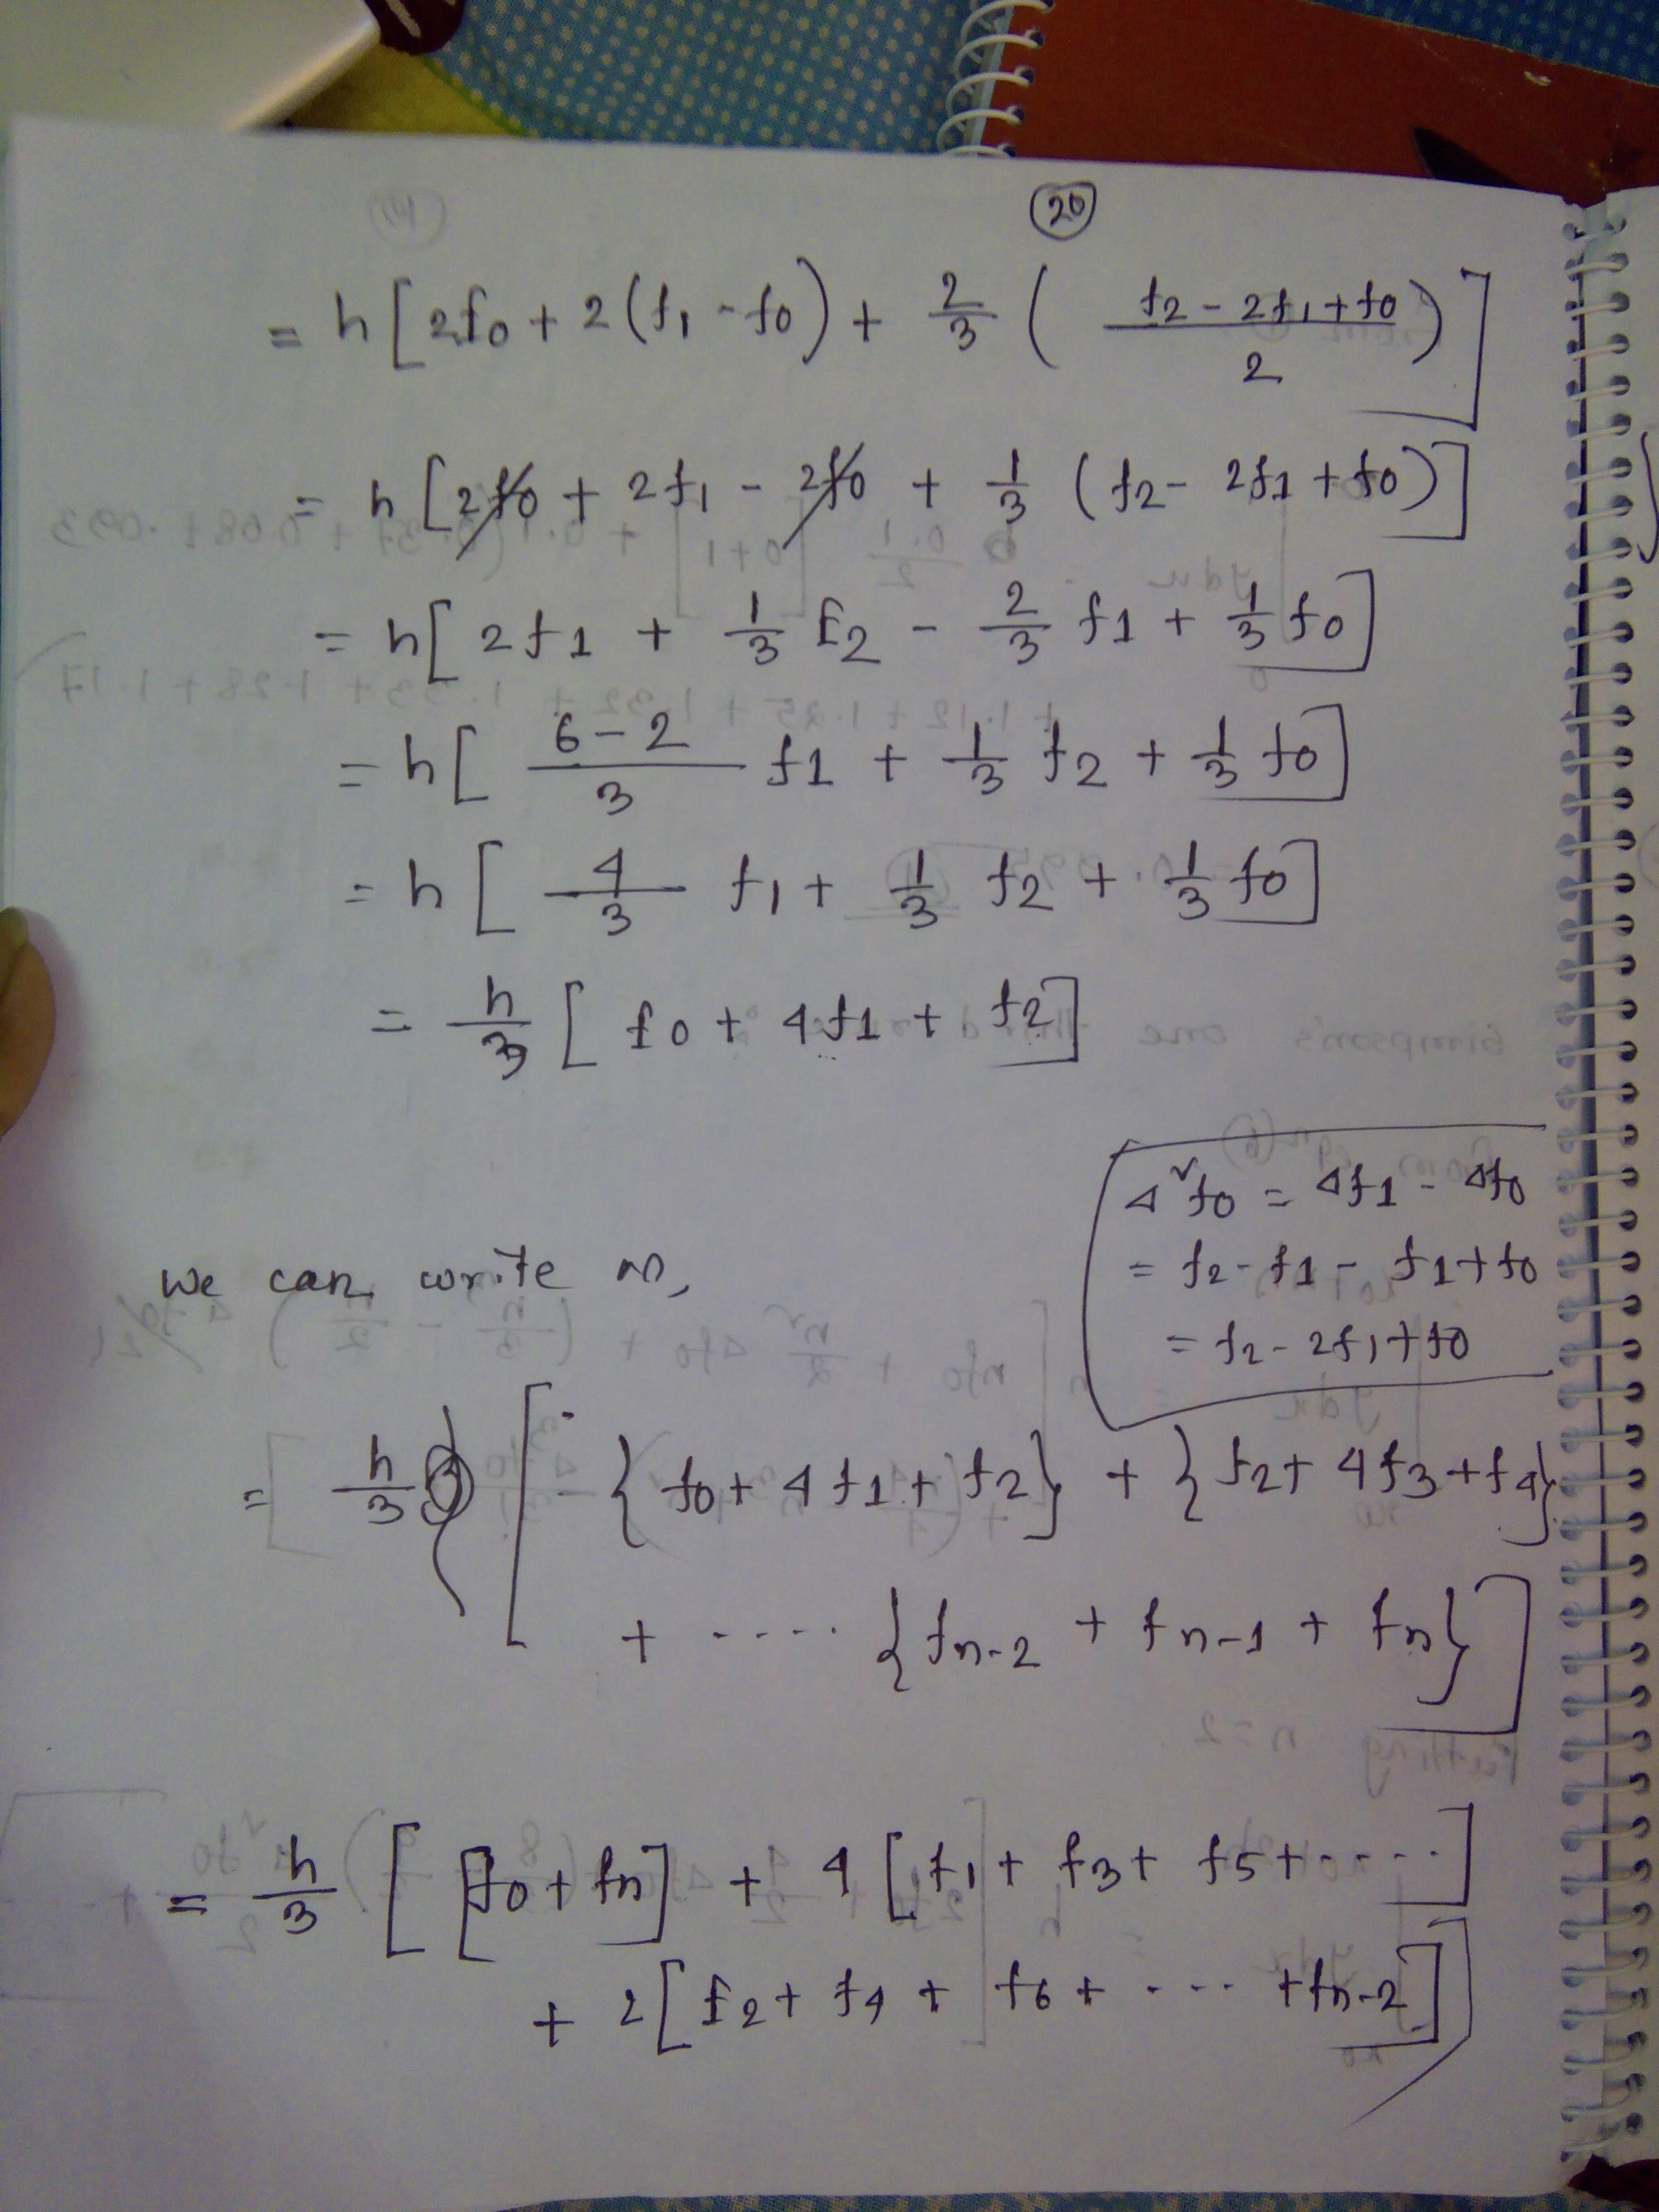 20
= h [2f0 + 2(f1 - f0) + 2/3 ( (f2 - 2f1 + f0)/2 )]
= h [2f0 + 2f1 - 2f0 + 1/3 (f2 - 2f1 + f0)]
= h [2f1 + 1/3 f2 - 2/3 f1 + 1/3 f0]
= h [ (6-2)/3 f1 + 1/3 f2 + 1/3 f0]
= h [ 4/3 f1 + 1/3 f2 + 1/3 f0]
= h/3 [ f0 + 4f1 + f2]
Δ²f0 = Δf1 - Δf0
= f2 - f1 - f1 + f0
= f2 - 2f1 + f0
we can write
= h/3 [ {f0 + 4f1 + f2} + {f2 + 4f3 + f4}
+ .... {fn-2 + fn-1 + fn} ]
= h/3 [ [f0 + fn] + 4 [f1 + f3 + f5 + ....]
+ 2 [f2 + f4 + f6 + .... + fn-2] ]